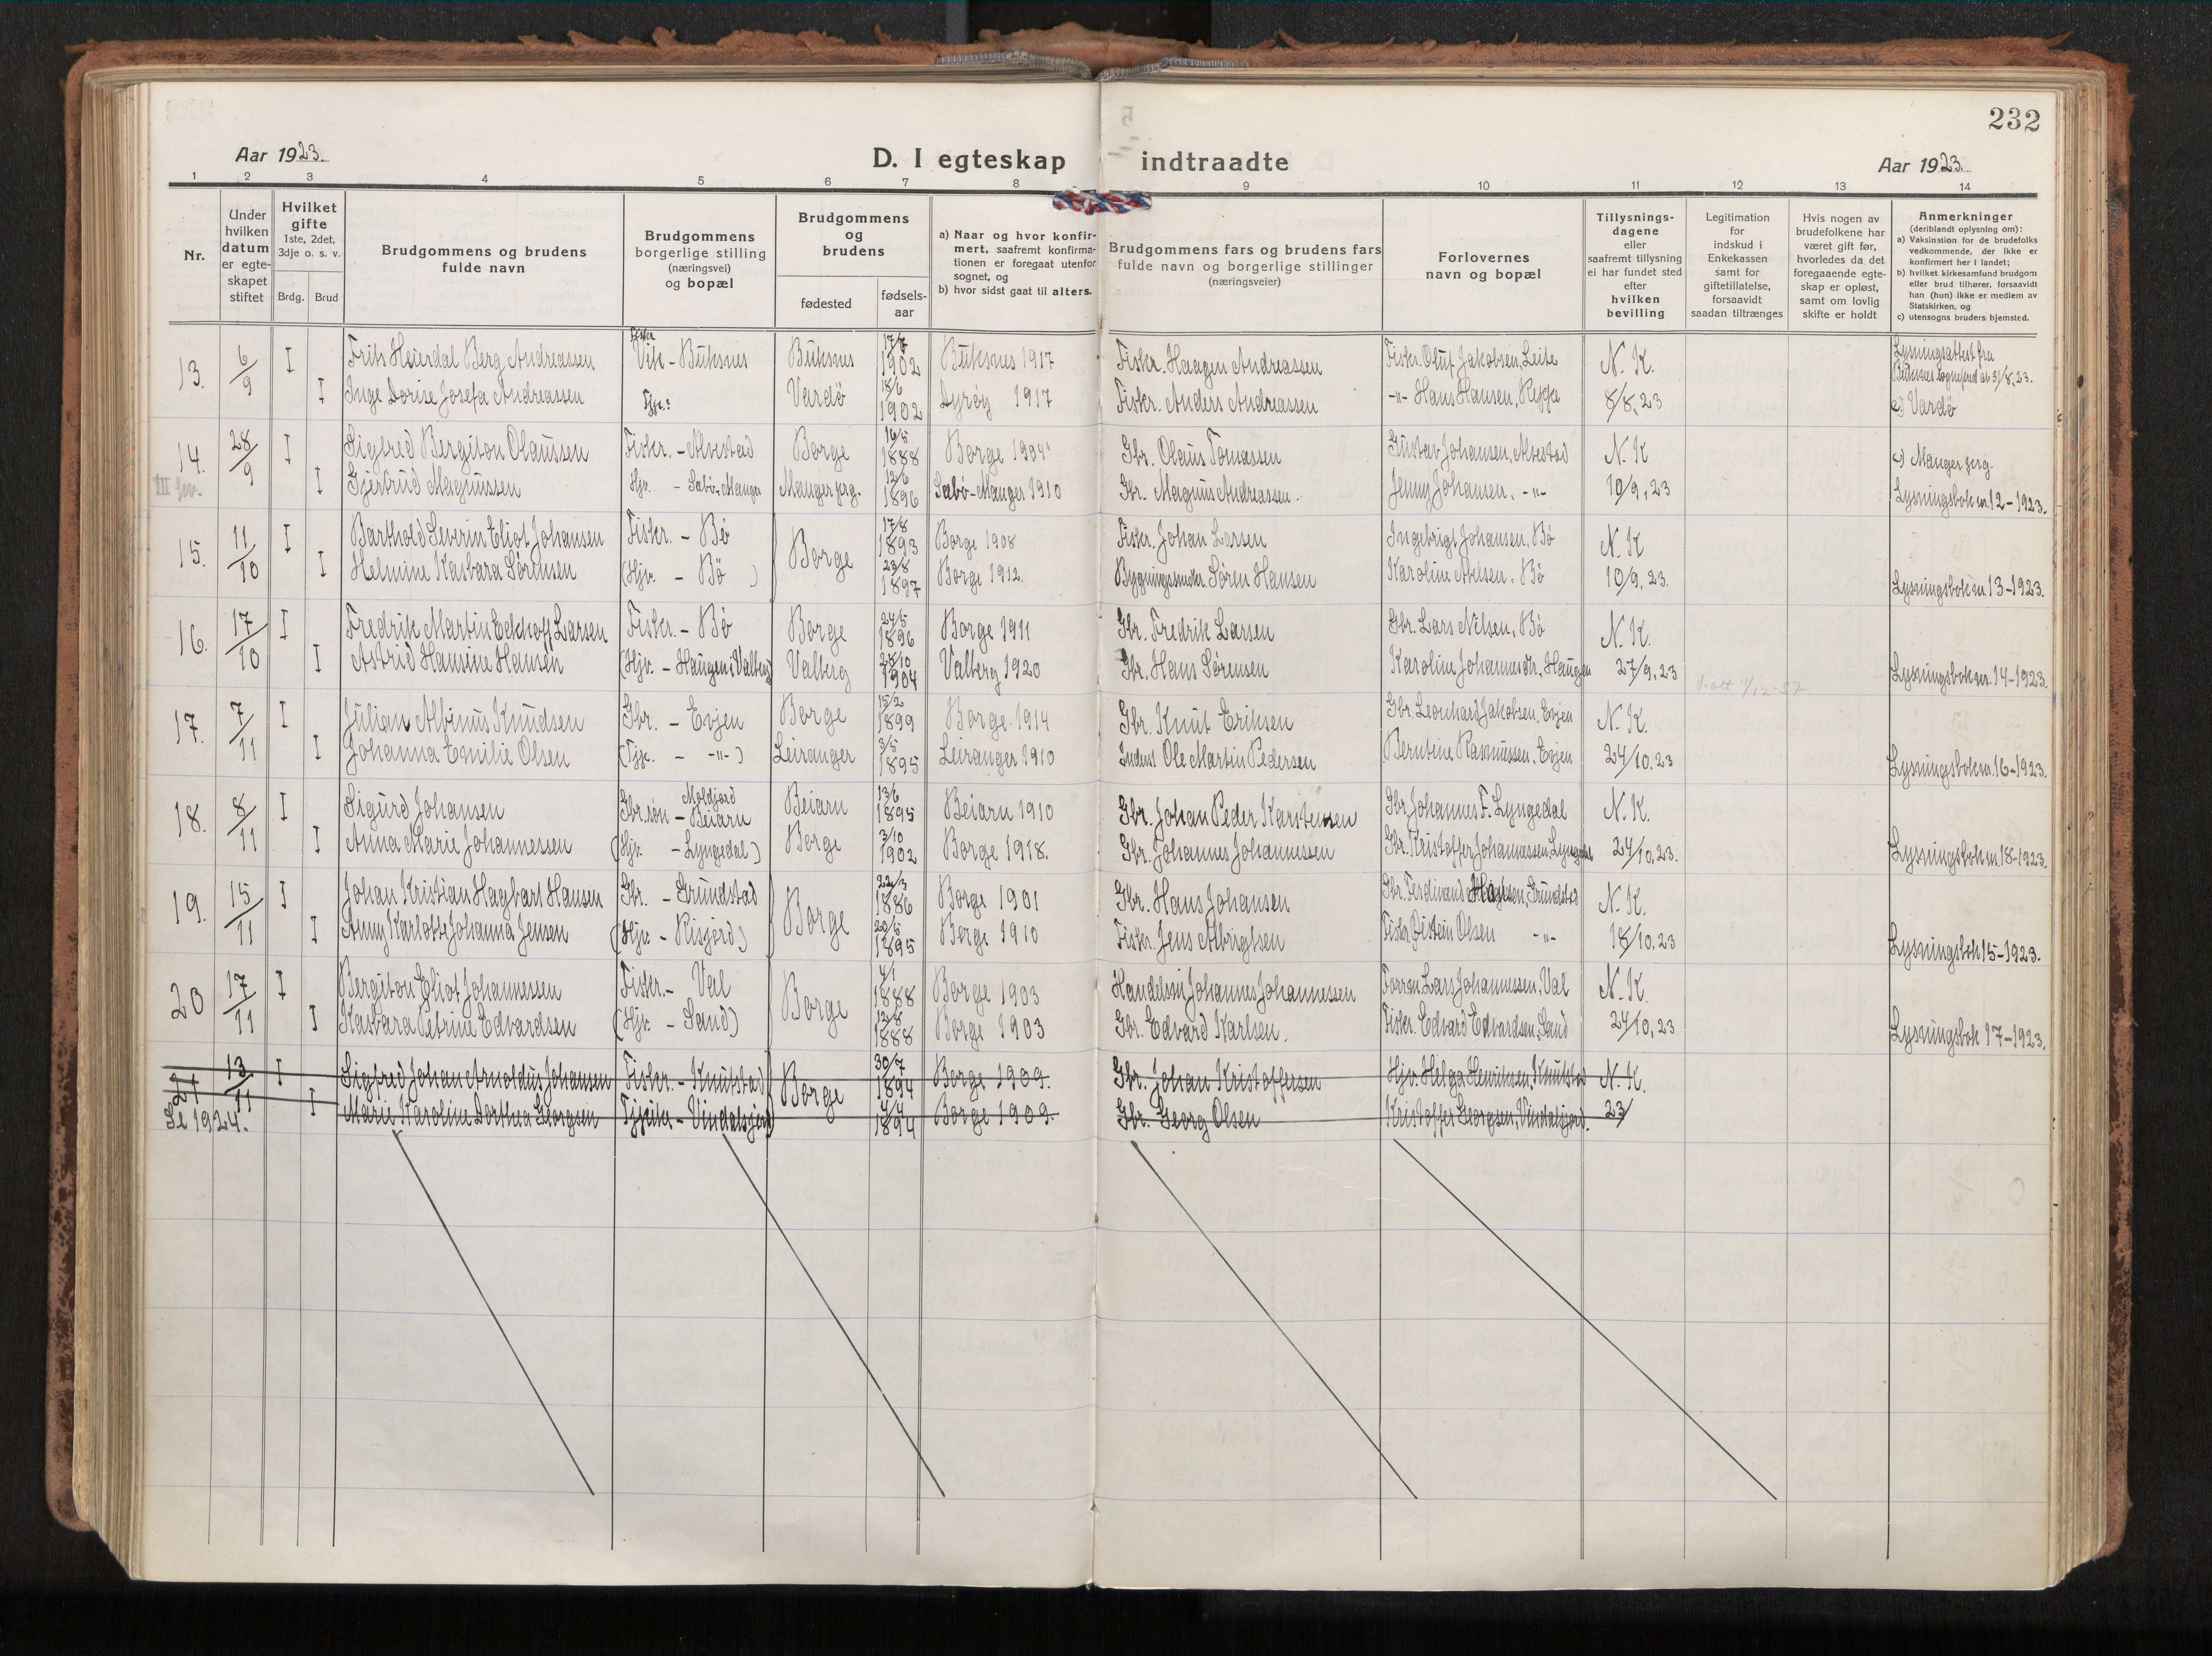 232
Aar 1923.
D. I egteskap indtraadte
Aar 1923.
1 2 3 4 5 6 7 8 9 10 11 12 13 14
Nr.
Under
hvilken
datum
er egte-
skapet
stiftet
Hvilket
gifte
1ste, 2det,
3dje o. s. v.
Brdg. Brud
Brudgommens og brudens
fulde navn
Brudgommens
borgerlige stilling
(næringsvei)
og bopæl
Brudgommens
og
brudens
fødested
fødsels-
aar
a) Naar og hvor konfir-
mert, saafremt konfirma-
tionen er foregaat utenfor
sognet, og
b) hvor sidst gaat til alters.
Brudgommens fars og brudens fars
fulde navn og borgerlige stillinger
(næringsveier)
Forlovernes
navn og bopæl
Tillysnings-
dagene
eller
saafremt tillysning
ei har fundet sted
efter
hvilken
bevilling
Legitimation
for
indskud i
Enkekassen
samt for
giftetillatelse,
forsaavidt
saadan tiltrænges
Hvis nogen av
brudefolkene har
været gift før,
hvorledes da det
foregaaende egte-
skap er opløst,
samt om lovlig
skifte er holdt
Anmerkninger
(deriblandt oplysning om):
a) Vaksinstion for de brudefolks
vedkommende, der ikke er
konfirmert her i landet;
b) hvilket kirkesamfund brudgom
eller brud tilhører, forsaavidt
han (hun) ikke er medlem av
Statskirken, og
c) utensogns bruders hjemsted.
13. 6/9 I Frits Heierdal Berg Andreassen Fisker Vik - Buksnes Buksnes 17/7 1902 Buksnes 1917 Fiskr. Haagen Andreassen Fiskr. Oluf Jakobsen, Leite N. K. Lysningsattest fra
Buksnes sognefund av 31/8, 23.
I Inge Dorise Josefa Andreassen Tjp.: Vardö 18/6 1902 Dyrøy 1917 Fiskr. Anders Andreassen -"- Hans Hansen, Reppe 8/8, 23 c) Vardö
14. 28/9 I Sigfred Bergiton Olaussen Fiskr. - Alvestad Borge 16/5 1888 Borge 1904 Gbr. Olaus Tomassen Gustav Johansen, Alvestad N. K c) Manger prg.
I Gjertrud Magnussen Hjv. - Sæbö - Manger Manger prg. 12/6 1896 Sæbö - Manger 1910 Gbr. Magnus Andreassen. Jenny Johansen. -"- 10/9, 23 Lysningsbok nr. 12 - 1923.
15. 11/10 I Barthold Severin Eliot Johansen Fiskr. - Bö Borge 17/8 1893 Borge 1908 Fiskr. Johan Larsen Ingebrigt Johansen, Bö N. K
I Helmine Kasbara Sørensen (Hjv. - Bö) 23/8 1897 Borge 1912. Bygningssnedker Søren Hansen Karoline Nilsen. Bö 10/9, 23. Lysningsbok nr. 13 - 1923.
16. 17/10 I Fredrik Martin Eckhoff Larsen Fiskr. - Bö Borge 24/5 1896 Borge 1911 Gbr. Fredrik Larsen Gbr. Lars Nilsen, Bö N. K.
I Astrid Hansine Hansen (Hjv. - Haugen i Valberg) Valberg 28/10 1904 Valberg 1920 Gbr. Hans Sørensen Karoline Johannesdtr. Haugen 27/9, 23 Lysningsbok nr. 14 - 1923.
17. 7/11 I Julian Albinus Knudsen Gbr. - Evjen Borge 15/2 1899 Borge 1914 Gbr. Knut Eriksen Gbr. Leonhard Jakobsen, Evjen N. K.
I Johanna Emilie Olsen (Tjp. - -"-) Leiranger 3/5 1895 Leiranger 1910 Inderst Ole Martin Pedersen Berntine Rasmussen, Evjen 24/10. 23 Lysningsbok nr. 16 - 1923.
18. 8/11 I Sigurd Johansen Gbr.søn - Moldjord Beiarn Beiarn 13/6 1895 Beiarn 1910 Gbr. Johan Peder Karstensen Gbr. Johannes F. Lyngedal N. K.
I Anna Marie Johannessen (Hjv. - Lyngedal) Borge 3/10 1902 Borge 1918. Gbr. Johannes Johannessen Gbr. Kristoffer Johannessen, Lyngedal 24/10, 23. Lysningsbok nr. 18 - 1923.
19. 15/11 I Johan Kristian Hagbart Hansen Gbr. - Grundstad Borge 22/3 1886 Borge 1901 Gbr. Hans Johansen Gbr. Ferdinand Hansen, Grundstad N. K.
I Anny Karlotte Johanna Jensen (Hjv. - Risjord) 20/5 1895 Borge 1910 Fiskr. Jens Albrigtsen Fiskr. Øistein Olsen -"- 18/10, 23 Lysningsbok 15 - 1923.
20 17/11 I Bergiton Eliot Johannessen Fiskr. - Val Borge 4/1 1888 Borge 1903 Handelsm. Johannes Johannessen Lars Johannessen, Val N. K.
I Kasbara Petrine Edvardsen (Hjv. - Sand) 12/8 1888 Borge 1903 Gbr. Edvard Karlsen. Fiskr. Edvard Edvardsen, Sand 24/10, 23 Lysningsbok 17 - 1923.
21 13/11 I Sigfred Johan Arnoldus Johansen Fiskr. - Knutstad Borge 30/7 1894 Borge 1909. Gbr. Johan Kristoffersen Hjv. Helga Henriksen, Knutstad N. K.
Se 1924. I Marie Karoline Dorthea Georgsen Tjpike - Vindalsjord 4/4 1894 Borge 1909. Gbr. Georg Olsen Kristoffer Georgsen, Vindalsjord. 23/